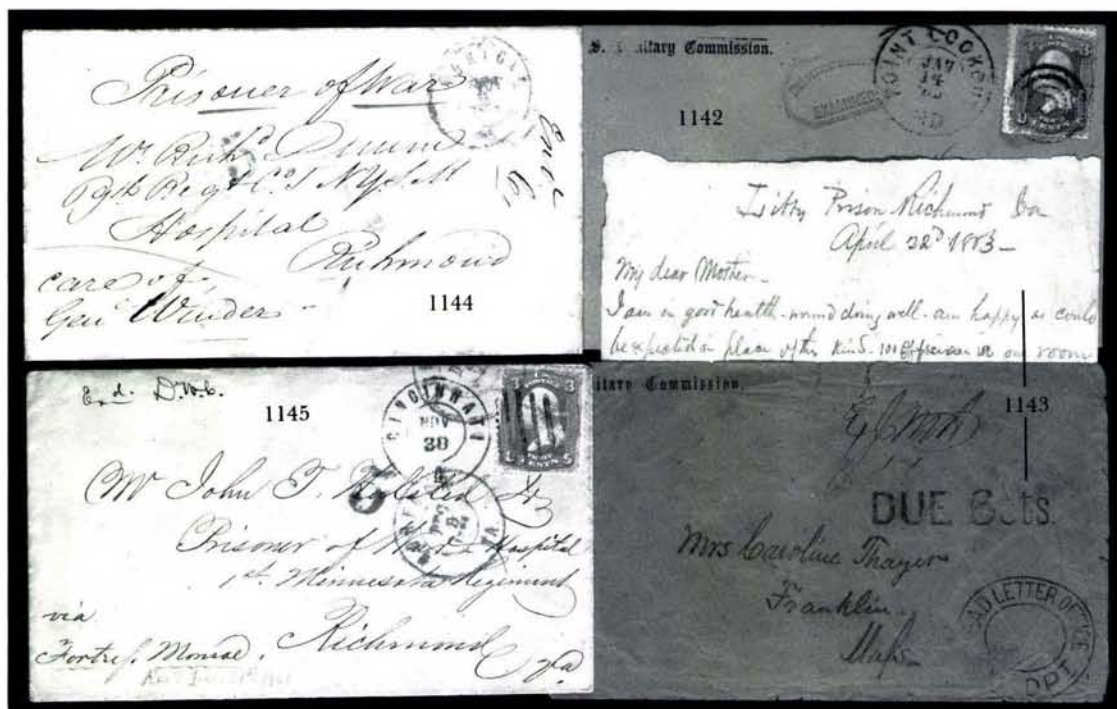 Prisoner of War
Mr. Richd
Regt Co. I N.Y.
Hospital
Richmond
care of
Genl Winder
1144
S. itary Commission.
EXAMINED
POINT LOOKOUT
JAN
14
MD
1142
Libby Prison Richmond Va
April 22d 1863
My dear Mother-
I am in good health - wound doing well - am happy as could
be expected in place of this kind. 100 officers in one room
Exd. D.W.C.
1145
CINCINNATI
NOV
30
Mr John T. Jr
Prisoner of War Hospital
1st Minnesota Regiment
via
Fortress Monroe.
Richmond
Va
itary Commission.
1143
DUE 6cts.
Mrs Caroline Thayer
Franklin
Mass
AD LETTER OFFICE